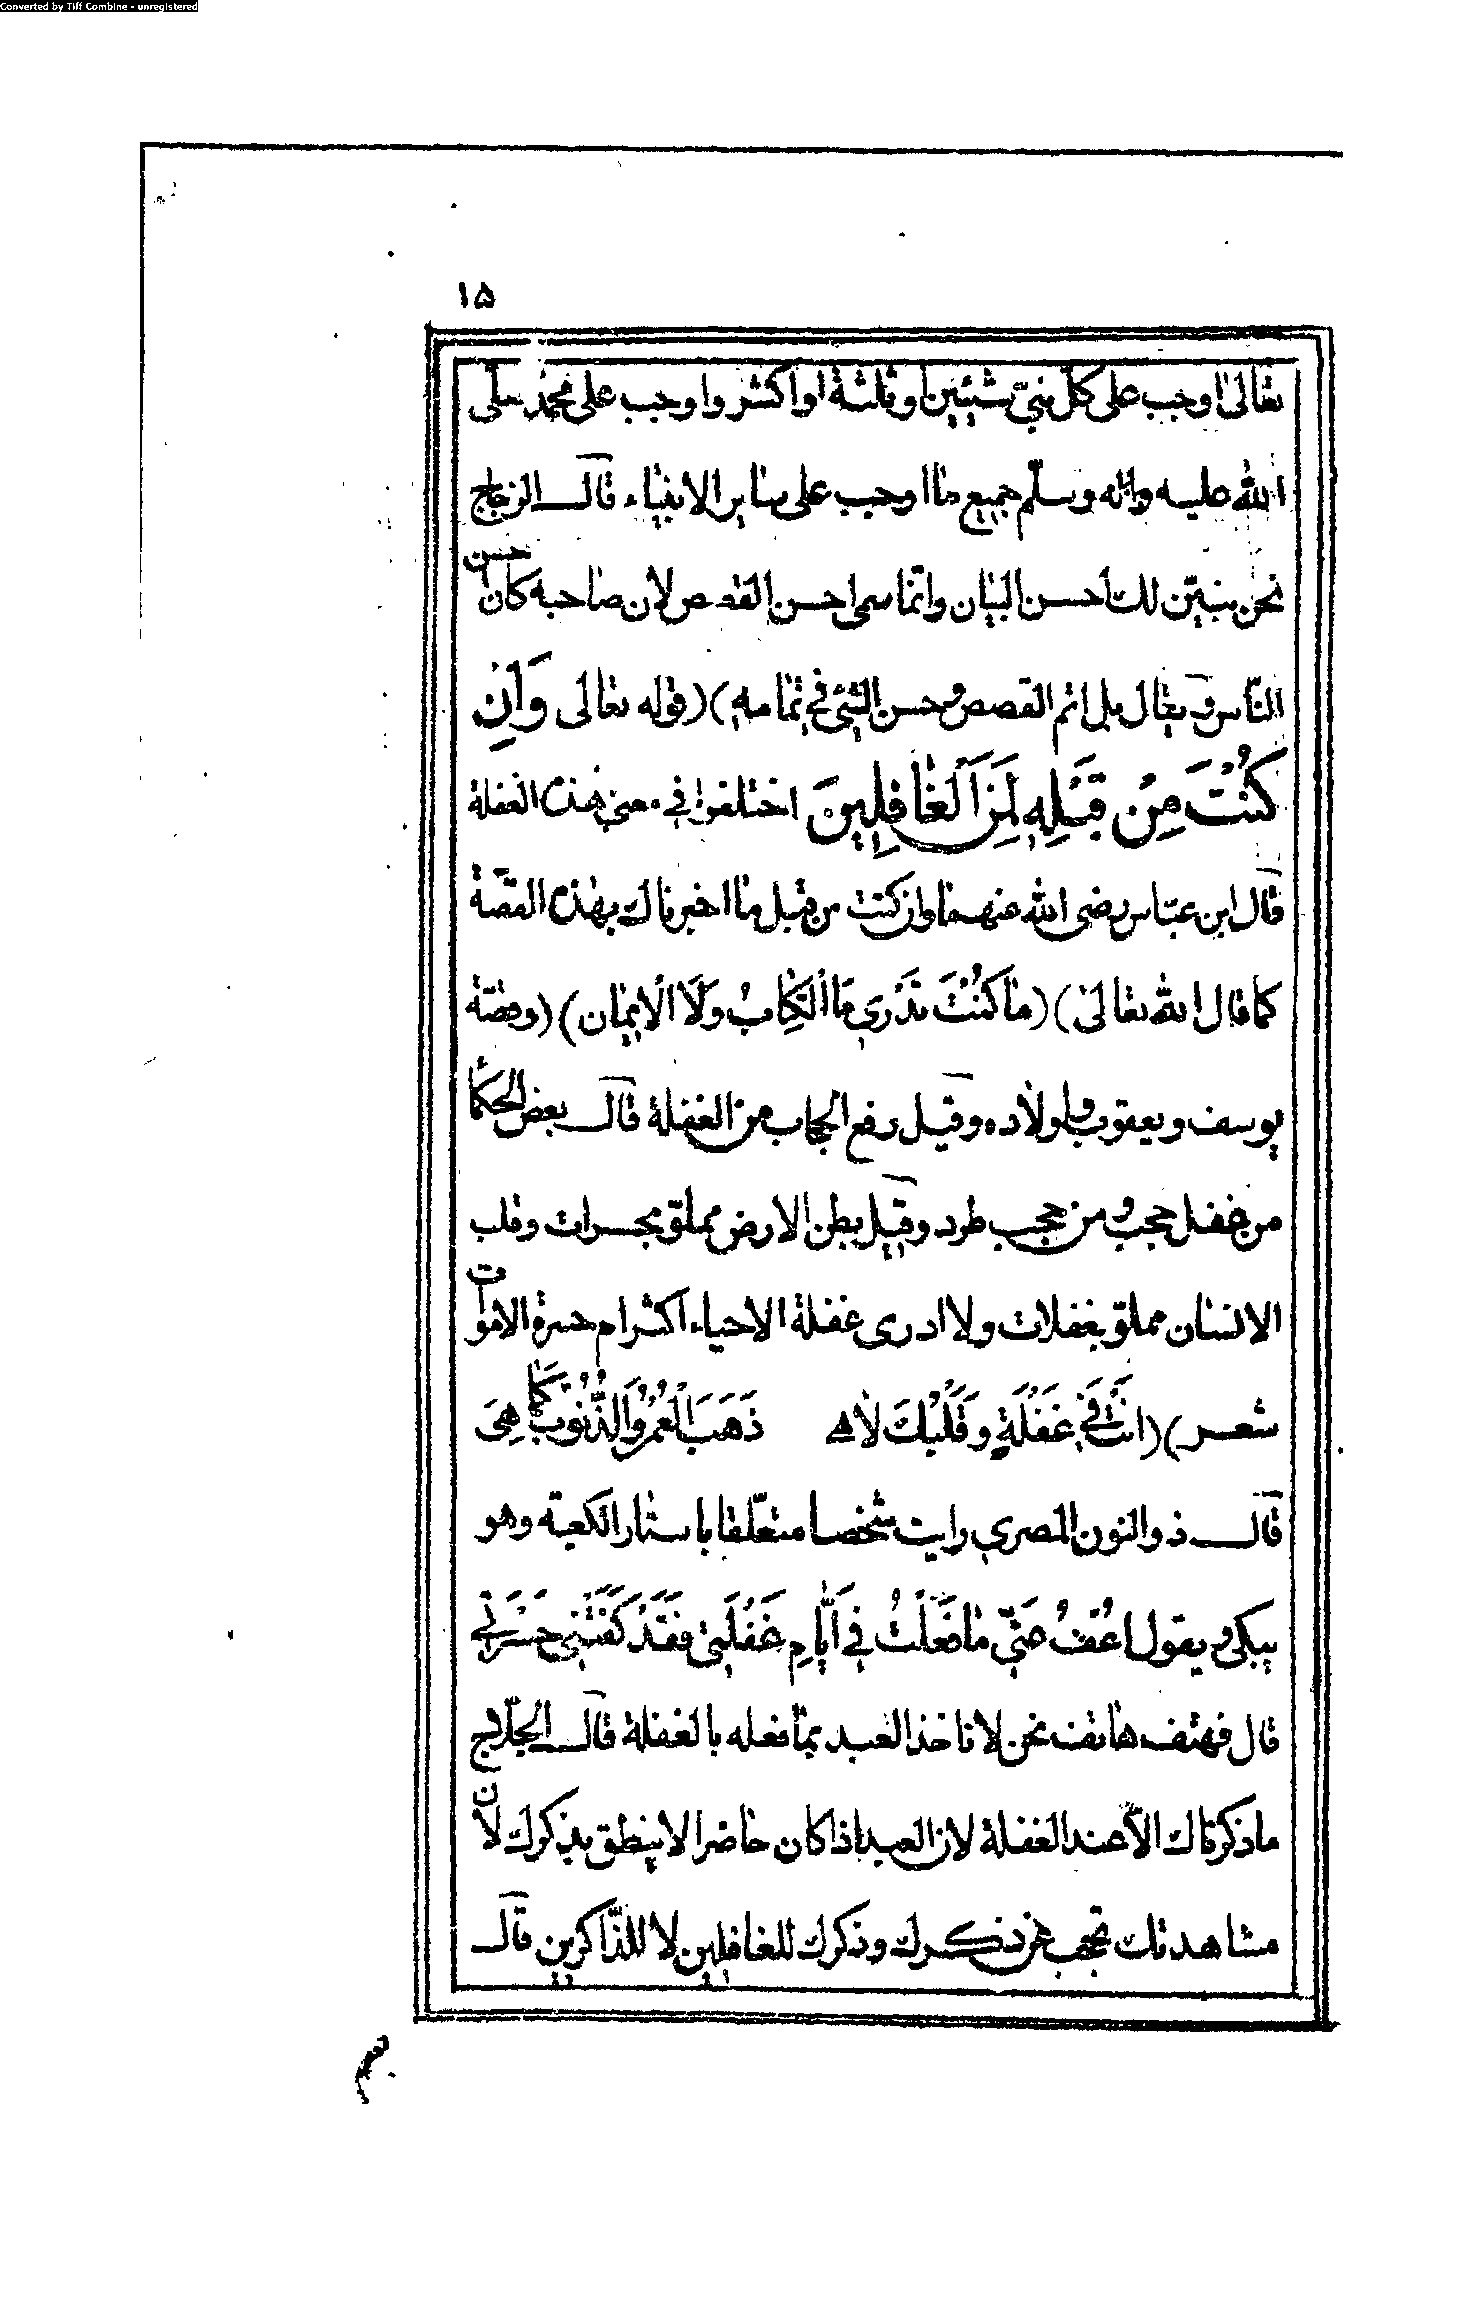 Converted by Tiff Combine - unregistered
١۵
تعالىٰ اوجب على كلّ نبىّ شيئين او ثلثة او اكثر واوجب على محمد صلى
الله عليه واله وسلّم جميع ما اوجب على ساير الانبياء قال الزجاج
نحن نبيّن لك احسن البيان وانّما سمى احسن القصص لان صاحبه كان احسن
النّاس ويقال بل اتم القصص وحسن الشئ فى تمامه)(قوله تعالى وَاِنْ
كُنْتَ مِنْ قَبْلِهِ لَمِنَ الْغافِلِينَ اختلفوا في معنى هذه الغفلة
قال ابن عبّاس رضى الله عنهما وان كنت من قبل ما اخبرناك بهذه القصّة
كما قال الله تعالىٰ)(مٰا كُنْتَ تَدْرِي مَا الْكِتابُ وَلَا الْايمٰان)(وقصّة
يوسف ويعقوب واولاده وقيل رفع الحجاب من الغفلة قال بعض الحكما
من غفل حجب ومن حجب طرد وقيل بطن الارض مملوّ بحسرات وقلب
الانسان مملو بغفلات ولا ادرى غفلة الاحياء اكثر ام حسرة الاموات
شعر)(انْتَ في غَفْلَةٍ وَقَلْبُكَ لاٰهى ذَهَبَ الْعُمْرُ وَالذُّنُوبُ كَمٰا هِىَ
قال ذو النون المصري رايت شخصا متعلّقا باستار الكعبة وهو
يبكى ويقول اعْفُ عَنّي مٰا فَعَلْتُ فِي اَيّٰامِ غَفْلَتي فَقَدْ كَفَتْني حَسْرَاتي
قال فهتف هاتف نحن لا ناخذ العبد بمٰا فعله بالغفلة قال الحلّاج
ماذكرناك الّا عند الغفلة لان العبد اذا كان حاضرا لا ينطق بذكرك لانّ
مشاهدتك تحجب عن ذكرك وذكرك للغافلين لا للذّاكرين قال